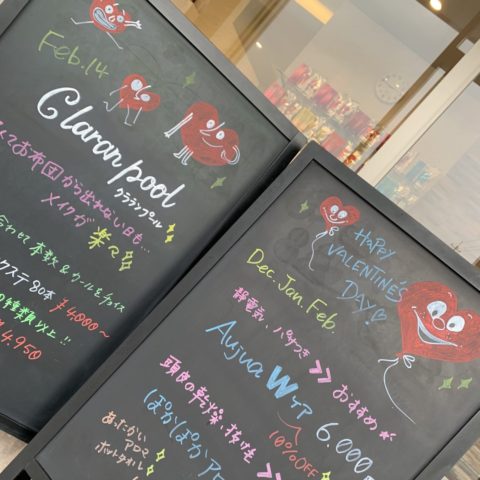 Feb.14
Claranpool
クラランプール
お布団から出れない日も…
メイクが楽々
合わせて本数&カール&チョイス
クステ80本 ¥4000〜
以上!!
4,950
HAPPY
VALENTINE'S
DAY!
Dec. Jan. Feb.
静電気、パサつき >> おすすめ
Aujua W TP 6,000
10%OFF
頭皮の乾燥
ぽかぽかアロ
あったかい
アロマ
ホットタオル